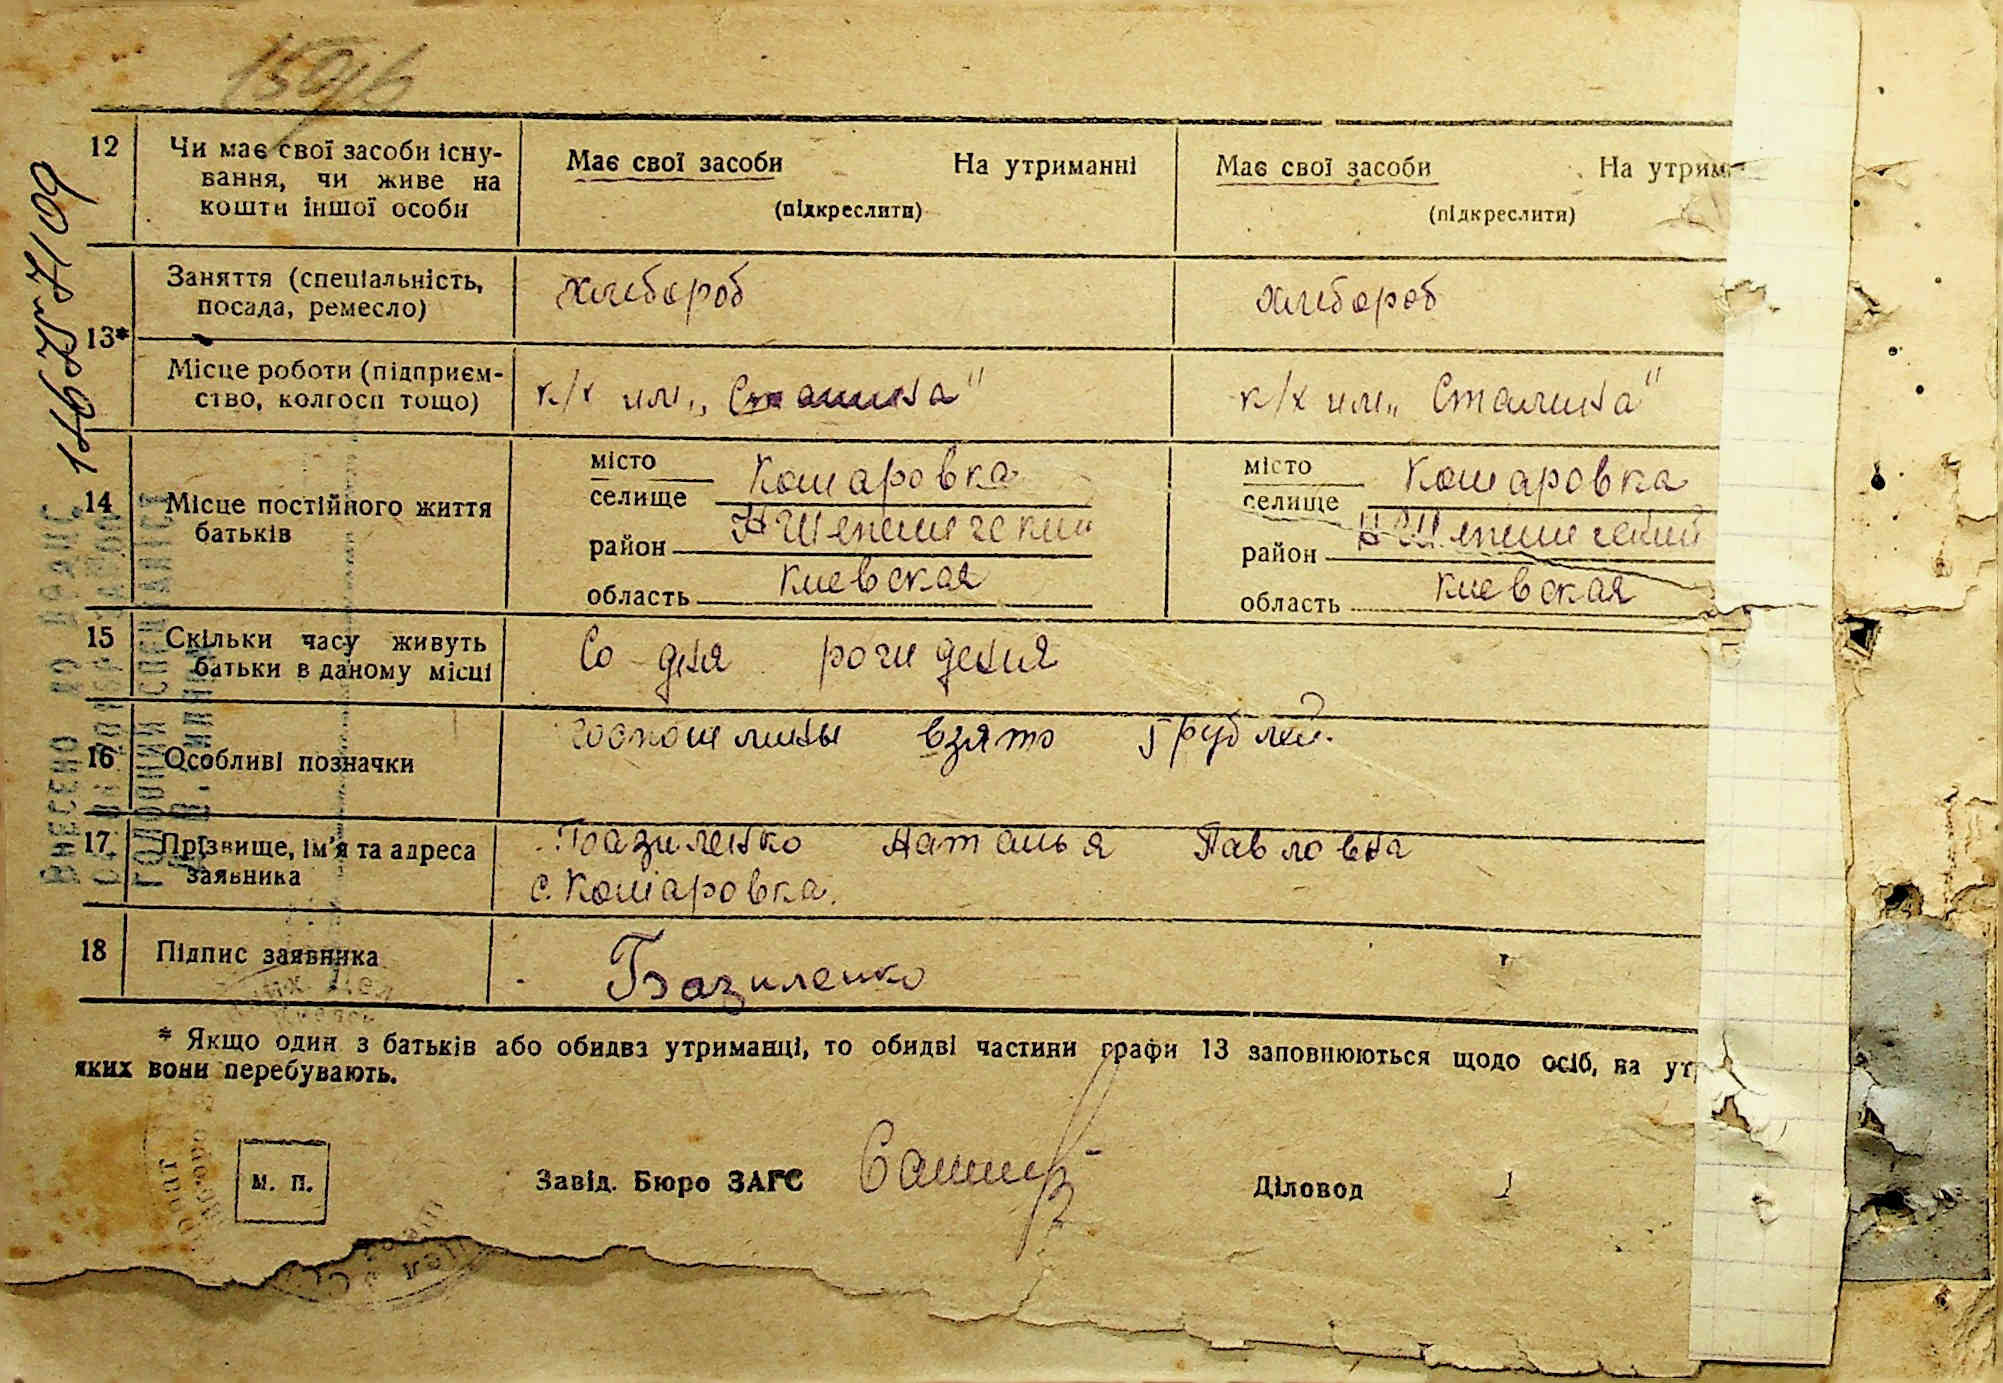 12 Чи має свої засоби існу-
вання, чи живе на
кошти іншої особи
Має свої засоби На утриманні
(підкреслити)
Має свої засоби На утрим
(підкреслити)
13*
Заняття (спеціальність,
посада, ремесло)
хлебороб
хлебороб
Місце роботи (підприєм-
ство, колгосп тощо)
к/х им „Сталина"
к/х им „Сталина"
14 Місце постійного життя
батьків
місто
селище Комаровка
район
область Киевская
місто
селище Комаровка
район
область Киевская
15 Скільки часу живуть
батьки в даному місці
Со дня рождения
16 Особливі позначки
госпошлины взято 5 рублей.
17 Прізвище, ім'я та адреса
заявника
Базиленко Наталья Павловна
с. Комаровка.
18 Підпис заявника
Базиленко
* Якщо один з батьків або обидва утриманці, то обидві частини графи 13 заповнюються щодо осіб, на ут
яких вони перебувають.
М. П.
Завід. Бюро ЗАГС
Діловод